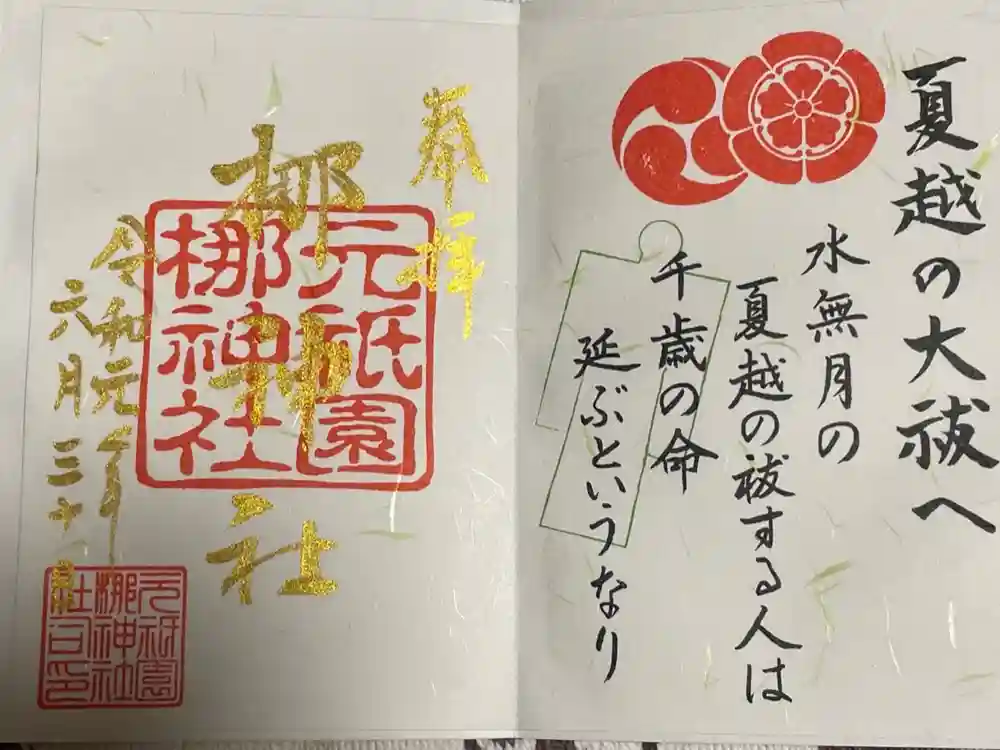 夏越の大祓へ
水無月の
夏越の祓する人は
千歳の命
延ぶというなり
奉拝
梛神社
元祇園
梛神社
令和元年
六月三十日
元祇園
梛神社
社司印